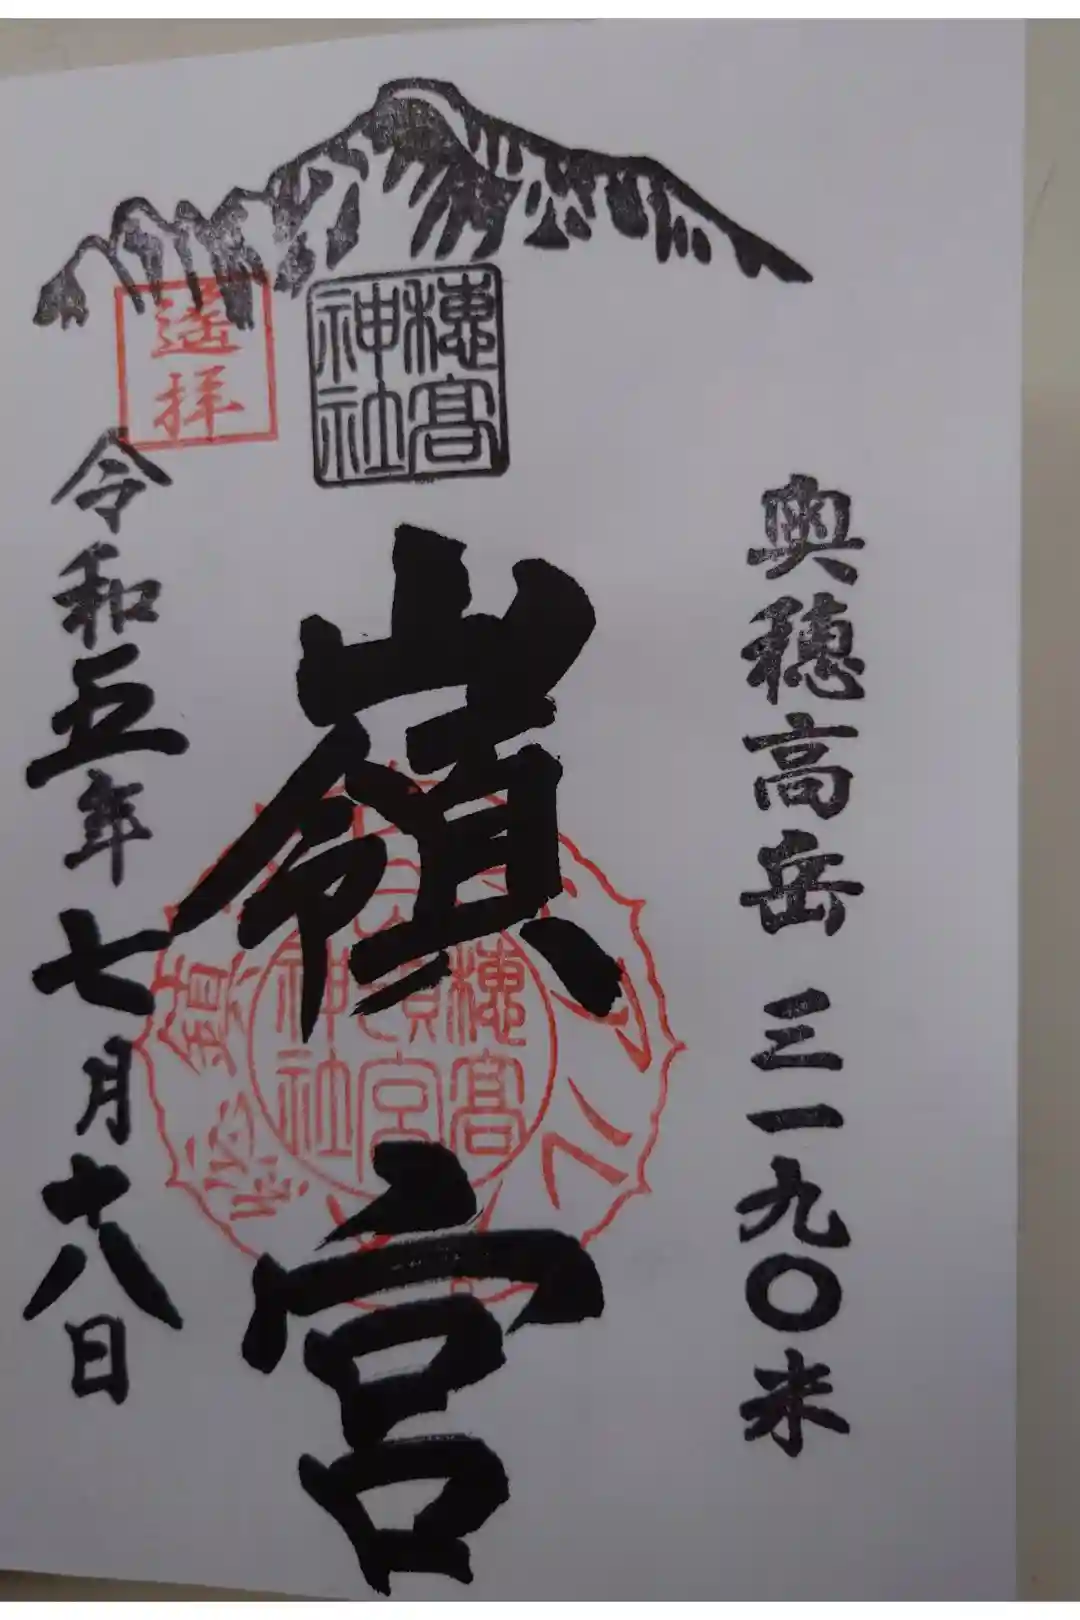 奥穂高岳 三一九〇米
穂高
神社
嶺宮
穂高
嶺宮
神社
遥拝
令和五年七月十八日